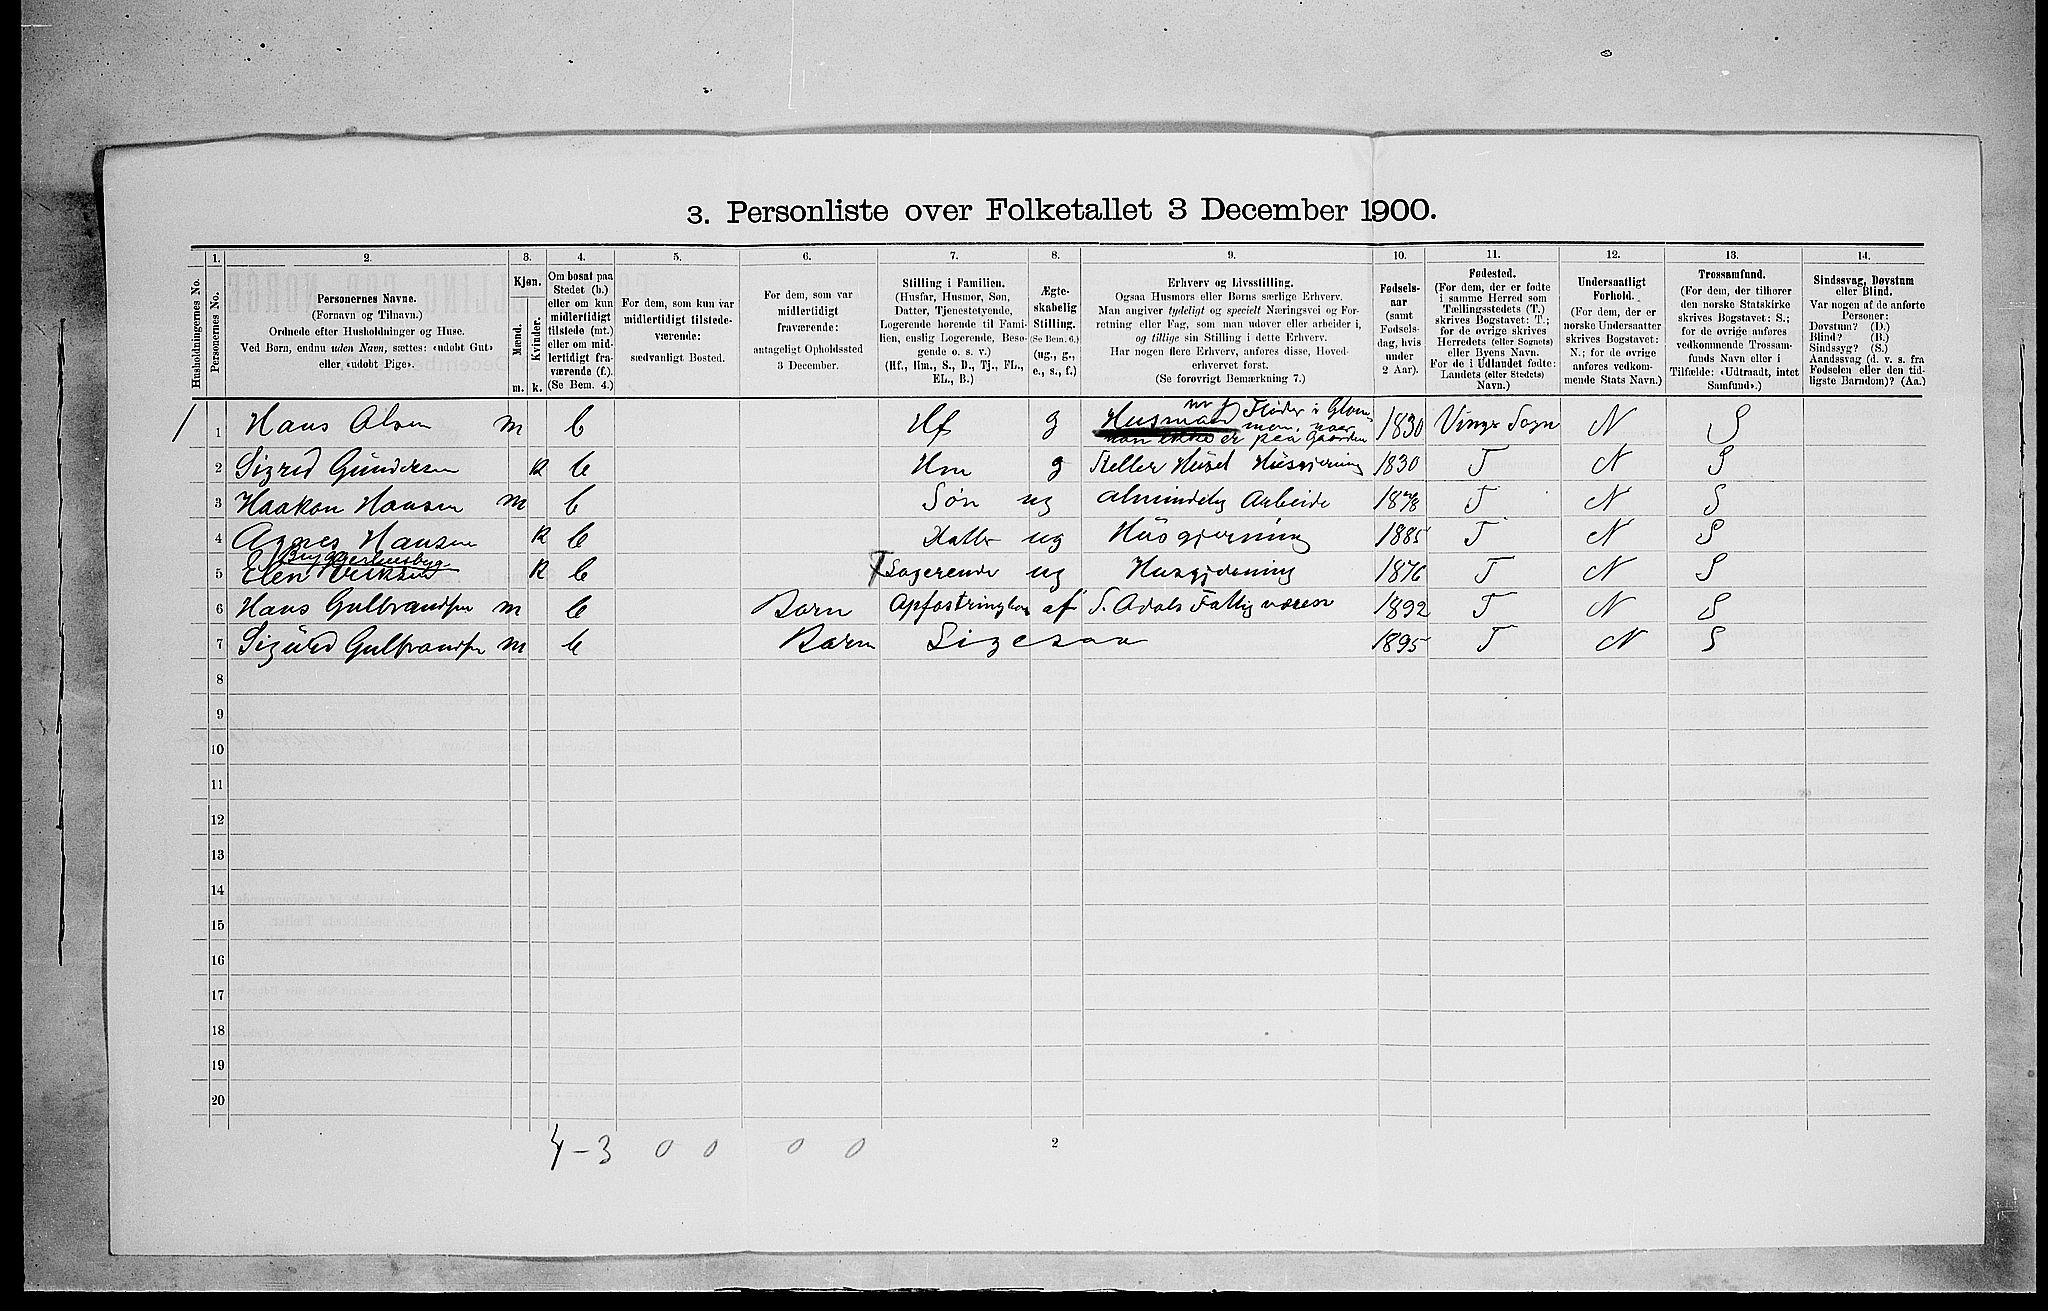 3. Personliste over Folketallet 3 December 1900.
Husholdningernes No.
1.
Personernes No.
2.
Personernes Navne.
(Fornavn og Tilnavn.)
Ordnede efter Husholdninger og Huse.
Ved Børn, endnu uden Navn, sættes: «udøbt Gut»
eller «udøbt Pige».
3.
Kjøn.
Mænd.
Kvinder.
m.
k.
4.
Om bosat paa
Stedet (b.)
eller om kun
midlertidigt
tilstede (mt.)
eller om mid-
lertidigt fra-
værende (f.).
(Se Bem. 4.)
5.
For dem, som kun var
midlertidigt tilstede-
værende:
sædvanligt Bosted.
6.
For dem, som var
midlertidigt
fraværende:
antageligt Opholdssted
3 December.
7.
Stilling i Familien.
(Husfar, Husmor, Søn,
Datter, Tjenestetyende,
Logerende hørende til Fami-
lien, enslig Logerende, Besø-
gende o. s. v.)
(Hf., Hm., S., D., Tj., FL.,
EL., B.)
8.
Ægte-
skabelig
Stilling.
(Se Bem. 6.)
(ug., g.,
e., s., f.)
9.
Erhverv og Livsstilling.
Ogsaa Husmors eller Børns særlige Erhverv.
Man angiver tydeligt og specielt Næringsvei og For-
retning eller Fag, som man udøver eller arbeider i,
og tillige sin Stilling i dette Erhverv.
Har nogen flere Erhverv, anføres disse, Hoved-
erhvervet først.
(Se forøvrigt Bemærkning 7.)
10.
Fødsels-
aar
(samt
Fødsels-
dag, hvis
under
2 Aar).
11.
Fødested.
(For dem, der er fødte
i samme Herred som
Tællingsstedets (T.)
skrives Bogstavet: T.;
for de øvrige skrives
Herredets (eller Sognets)
eller Byens Navn.
For de i Udlandet fødte:
Landets (eller Stedets)
Navn.)
12.
Undersaatligt
Forhold.
(For dem, der er
norske Undersaatter
skrives Bogstavet:
N.; for de øvrige
anføres vedkom-
mende Stats Navn.)
13.
Trossamfund.
(For dem, der tilhører
den norske Statskirke
skrives Bogstavet: S.;
for de øvrige anføres
vedkommende Trossam-
funds Navn eller i
Tilfælde: «Udtraadt, intet
Samfund».)
14.
Sindssvag, Døvstum
eller Blind.
Var nogen af de anførte
Personer:
Døvstum? (D.)
Blind? (B.)
Sindssyg? (S.)
Aandssvag (d. v. s. fra
Fødselen eller den tid-
ligste Barndom)? (Aa.)
1 1 Hans Olsen m b Hf g Husmand m j Fløder i Glom-
men, naar
han ikke er paa Gaarden 1830 Vings Sogn N S
2 Sigrid Gundersen k b Hm g Steller Huset Husgjerning 1830 T N S
3 Haakon Hansen m b Søn ug almindelig Arbeide 1878 T N S
4 Agnes Hansen k b Datter ug Husgjerning 1885 T N S
5 Elen Eriksen k b Logerende ug Husgjerning 1876 T N S
6 Hans Gulbrandsen m b Barn Opfostring hos af S. Odals Fattigvæsen 1892 T N S
7 Sigurd Gulbrandsen m b Barn Ligesaa 1895 T N S
8
9
10
11
12
13
14
15
16
17
18
19
20
4-3 0 0 0 0
2